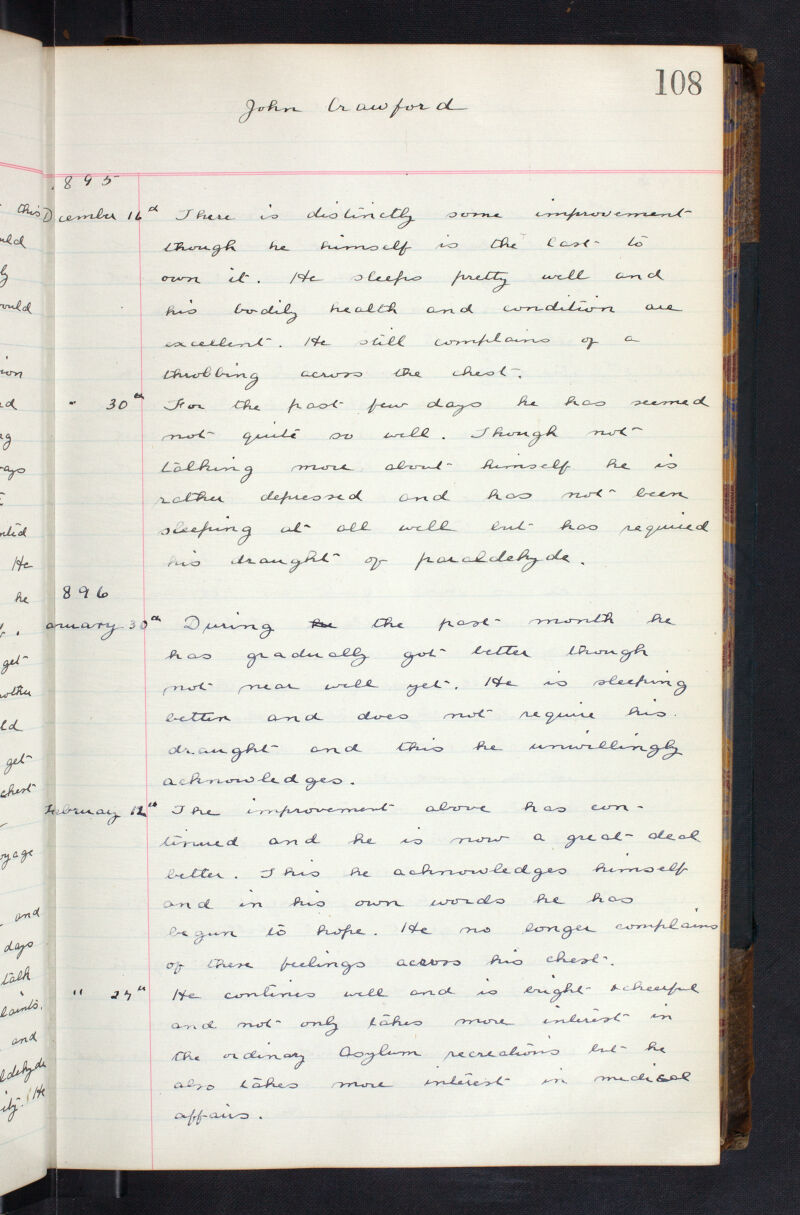 108
John Crawford
1895
December 16th There is distinctly some improvement
though he himself is the last to
own it. He sleeps pretty well and
his bodily health and condition are
excellent. He still complains of a
throbbing across the chest.
" 30th For the past few days he has seemed
not quite so well. Though not
talking more about himself he is
rather depressed and has not been
sleeping at all well but has required
his draught of paraldehyde.
896
anuary 30th During the the past month he
has gradually got better though
not near well yet. He is sleeping
better and does not require his
draught and this he unwillingly
acknowledges.
February 12th The improvement above has con-
tinued and he is now a great deal
better. This he acknowledges himself
and in his own words he has
begun to hope. He no longer complains
of these feelings across his chest.
" 27th He contines well and is bright & cheerful
and not only takes more interest in
the ordinary Asylum recreations but he
also takes more interest in medical
affairs.
this
uld
ould
ion
He
he
get
get
chest
oyage
and
days
talk
laints,
and
ldehyde
ity. He